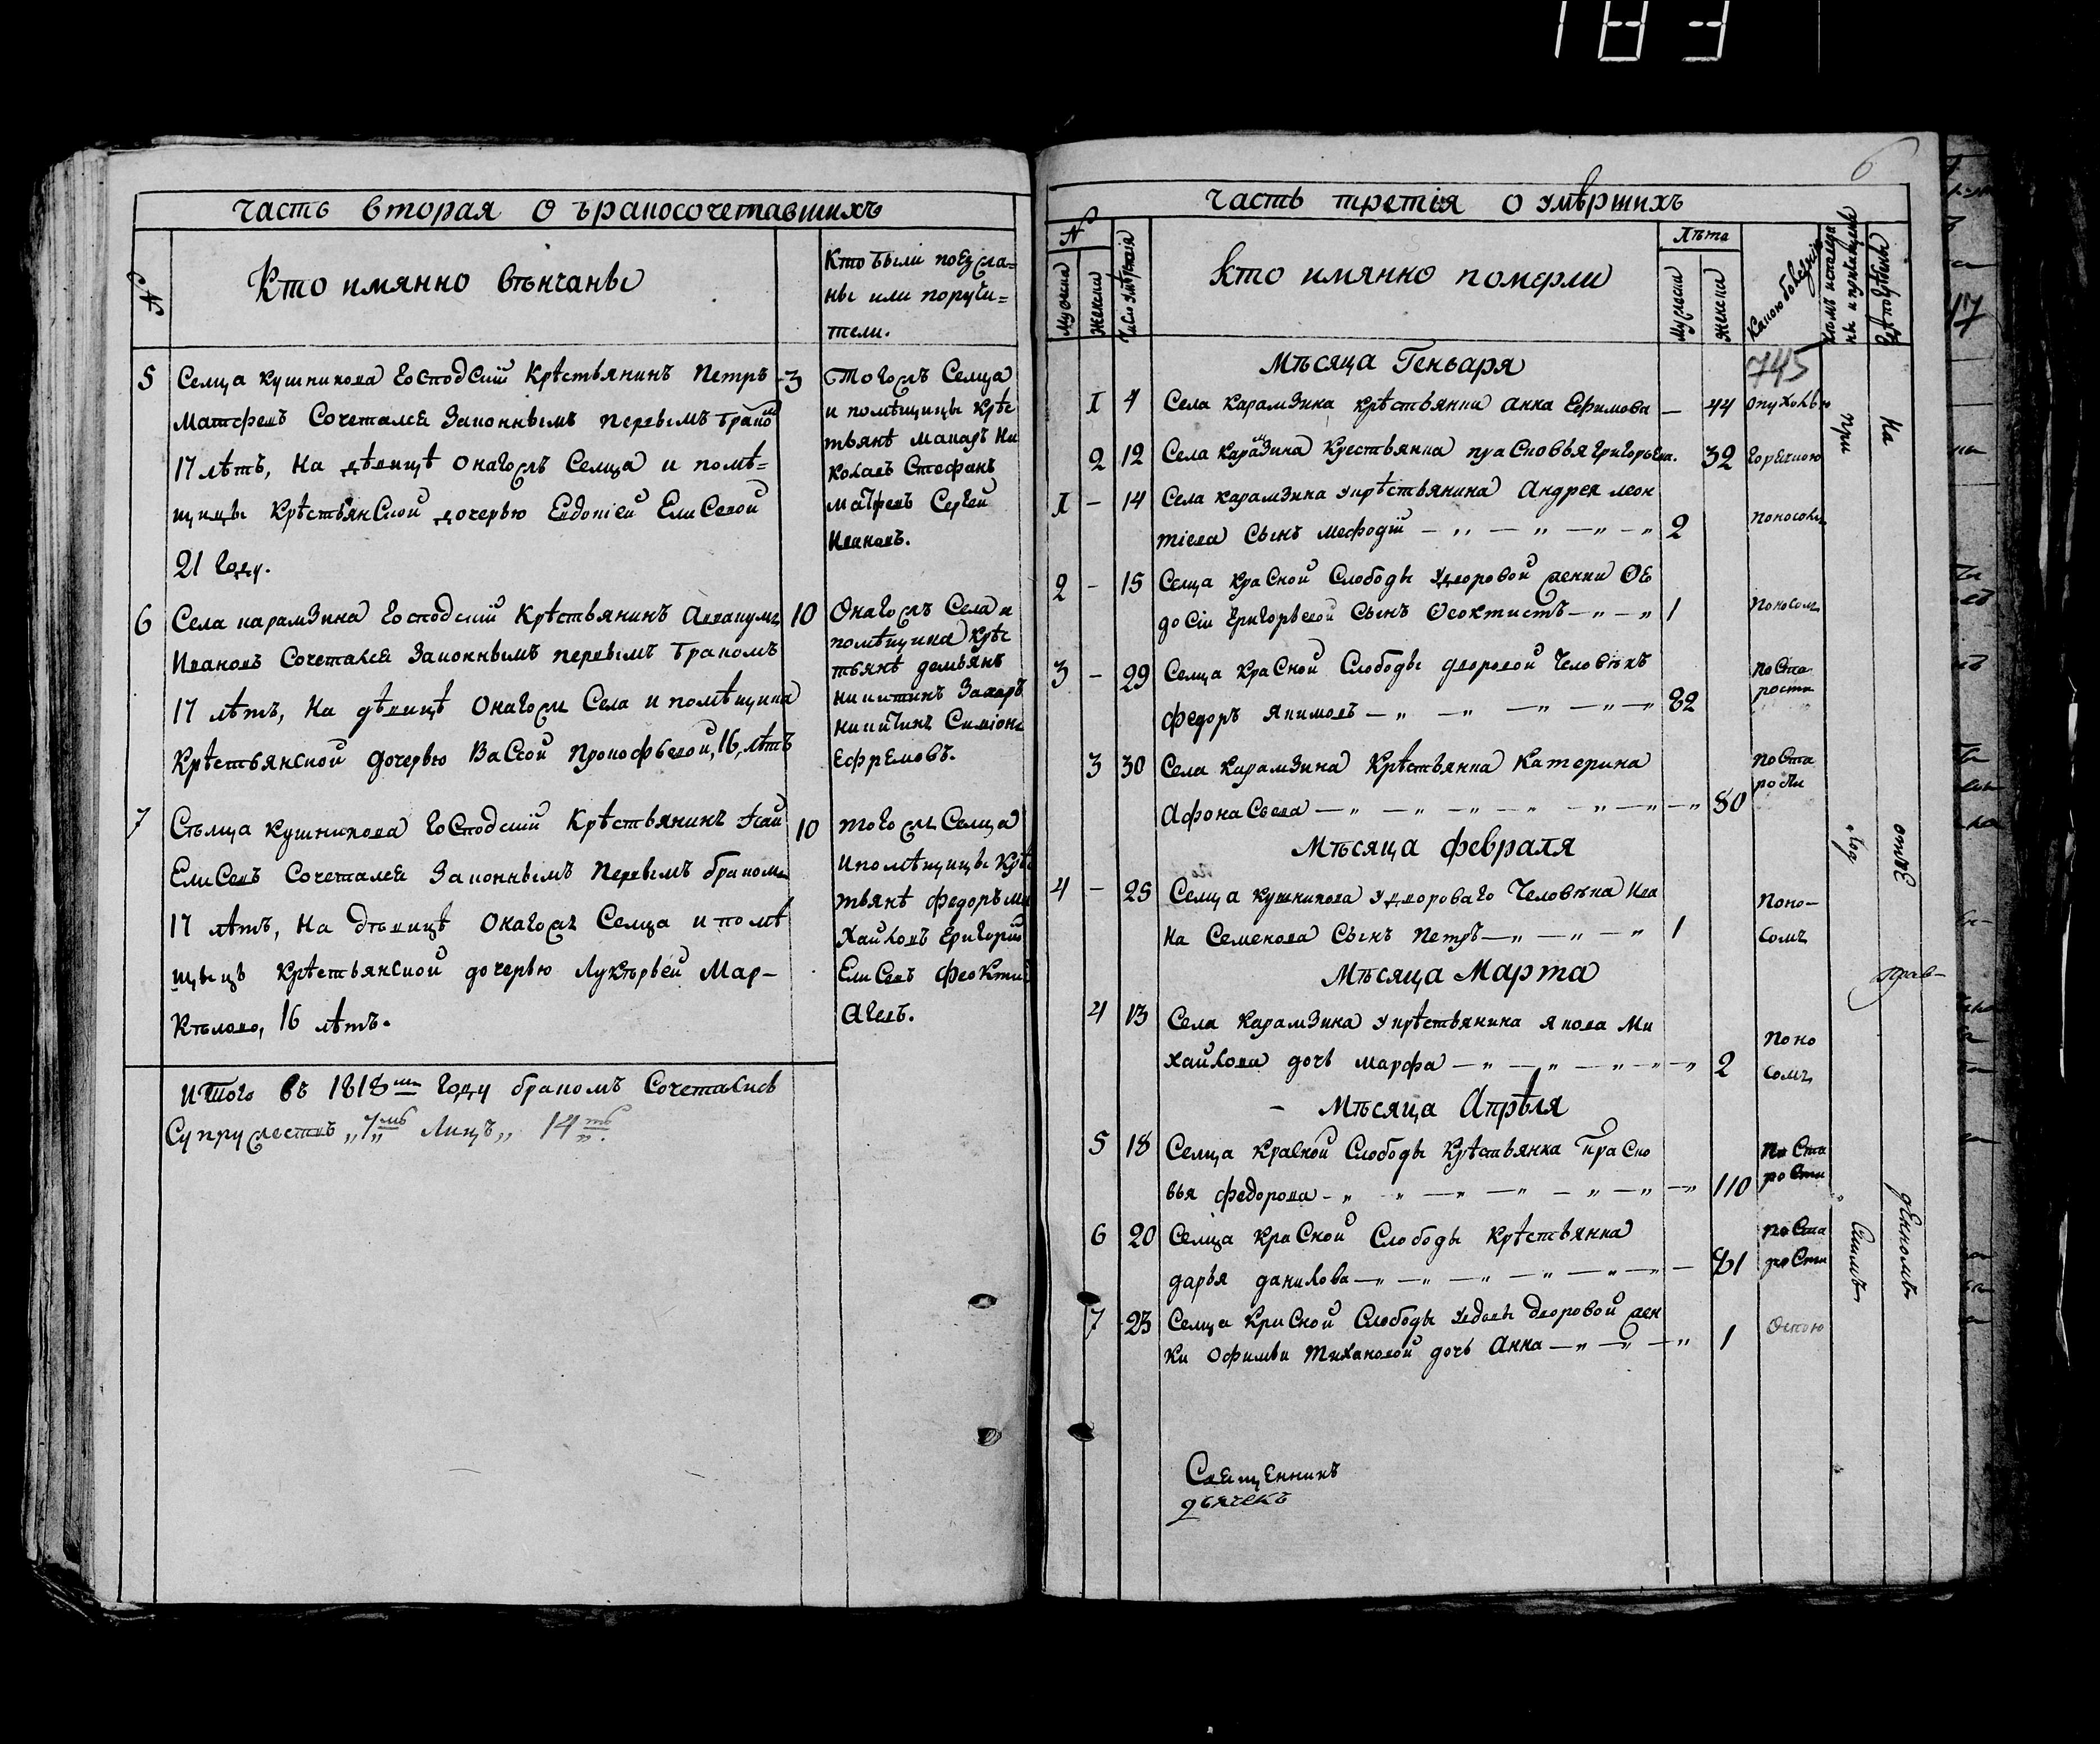 183
часть вторая о бракосочетавшихъ
№
Кто имянно вѣнчаны
Кто были поезжа=
ны или поручи=
тели.
5 Селца кушникова господскій Крѣстьянинъ Петръ 3
Матфеевъ Сочетался Законнымъ первымъ брако
17 лѣтъ, На дѣвицѣ Онагожъ Селца и помѣ=
щицы Крѣстьянской дочерью Евдокіей Елисевой
21 году.
Тогожъ Селца
и помѣщицы Крѣс
тьянѣ макаръ Ни
колаевъ Стефанъ
матфеевъ Сергей
Ивановъ.
6 Села карамзина господскій Крѣстьянинъ Аввакумъ 10
Ивановъ Сочетался Законнымъ первымъ бракомъ
17 лѣтъ, На дѣвицѣ Онагожъ Села и помѣщика
Крѣстьянской дочерью Вассой Прокофьевой, 16, лѣтъ
Онагожъ Села и
помѣщика крѣс
тьянѣ демьянъ
никитинъ Захаръ
никитинъ Симіонъ
Ефремовъ.
7 Стьлца кушникова господскій Крѣстьянинъ 10
Елисевъ Сочетался Законнымъ Первымъ бракомъ
17 лѣтъ, на дѣвицѣ Онагожъ Селца и помѣ
щыцъ Крѣстьянской дочерью Лукѣрьей Мар-
Кѣловой, 16 лѣтъ.
тогожъ Селца
Ипомѣщицы Крѣс
тьянѣ Федоръ ми
Хайловъ Григорій
Елисевъ Феокти
Агеевъ.
Итого въ 1818мъ году бракомъ Сочетались
Супружествъ „7мь„ Лицъ„ 14ть„.
6
часть третія о умѣршихъ
№
Мужска
Женска
Число умѣртвія
кто имянно померли
Лѣта
Мужска
Женска
Какою болезнію
Кѣмъ исповеда
ны и приобщены
Где погребены
Мѣсяца Геньваря
745
1 4 Села карамзина крѣстьянки анна Ефимова — 44 опухолью
2 12 Села Карамзина Крестьянка прасковья григорьева. 32 горячкою
1 - 14 Села карамзина укрѣстьянина Андрея леон
тіева Сынъ мефодій — „ — „ — „ — „ 2 поносомъ
2 - 15 Селца красной Слободы удворовой женки Фе
досіи григорьевой Сынъ Феоктистъ — „ — „ 1 поносомъ
3 - 29 Селца Красной Слободы дворовой Человѣкъ
федоръ якимовъ — „ — „ — „ — „ — „ 82 по Ста
рости
3 30 Села Карамзина Крѣстьянка Катерина
Афонасьева — „ — „ — „ — „ — „ — „ — „ 80 по Ста
рости
Мѣсяца февраля
4 - 25 Селца кушникова удвороваго Человѣка Ива
на Семенова Сынъ Петръ — „ — „ — „ 1 Поно-
сомъ
Мѣсяца Марта
4 13 Села Карамзина укрѣстьянина якова Ми
хайлова дочь марфа — „ — „ — „ — „ — „ 2 Поно
сомъ
- Мѣсяца Апрѣля
5 18 Селца красной Слободы крѣстьянка Праско
вья федорова — „ — „ — „ — „ — „ — „ 110 по Ста
рости
6 20 Селца красной Слободы Крѣстьянка
дарья данилова — „ — „ — „ — „ — „ — „ — 81 по Ста
рости
7 23 Селца Красной Слободы удовы дворовой жен
ки Офимьи тихановой дочь Анна — „ — „ — „ 1 Оспою
при
Симъ
На
денномъ
Священникъ
дьячекъ